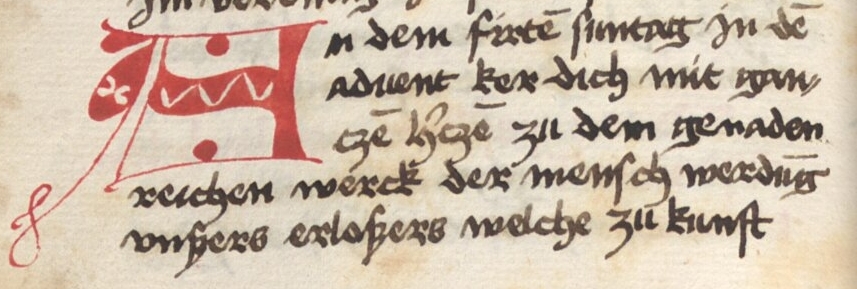 An dem firtē suntag in dē
aduent ker dich mit gan-
czē h'czē zu dem genaden
reichen werck der mensch werdūg
vnßers erloßers welche zu kunft